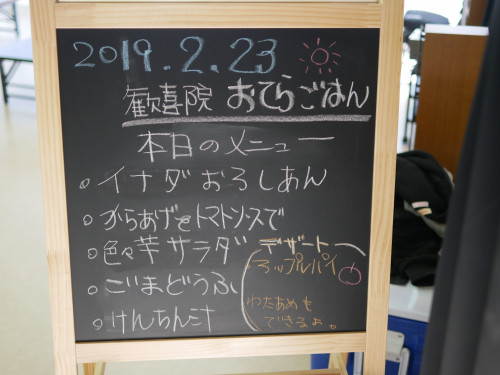 2019.2.23
歓喜院 おてらごはん
本日のメニュー
。イナダおろしあん
。からあげをトマトソースで
。色々芋サラダ
。ごまどうふ
。けんちん汁
デザート
アップルパイ
わたあめも
できるよ。